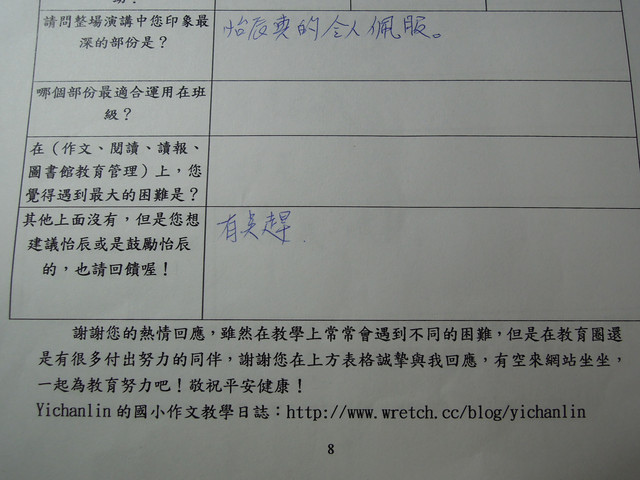 請問整場演講中您印象最
深的部份是？
怡辰真的令人佩服。
哪個部份最適合運用在班
級？
在（作文、閱讀、讀報、
圖書館教育管理）上，您
覺得遇到最大的困難是？
其他上面沒有，但是您想
建議怡辰或是鼓勵怡辰
的，也請回饋喔！
有吳趕.
謝謝您的熱情回應，雖然在教學上常常會遇到不同的困難，但是在教育圈還
是有很多付出努力的同伴，謝謝您在上方表格誠摯與我回應，有空來網站坐坐，
一起為教育努力吧！敬祝平安健康！
Yichanlin 的國小作文教學日誌：http://www.wretch.cc/blog/yichanlin
8